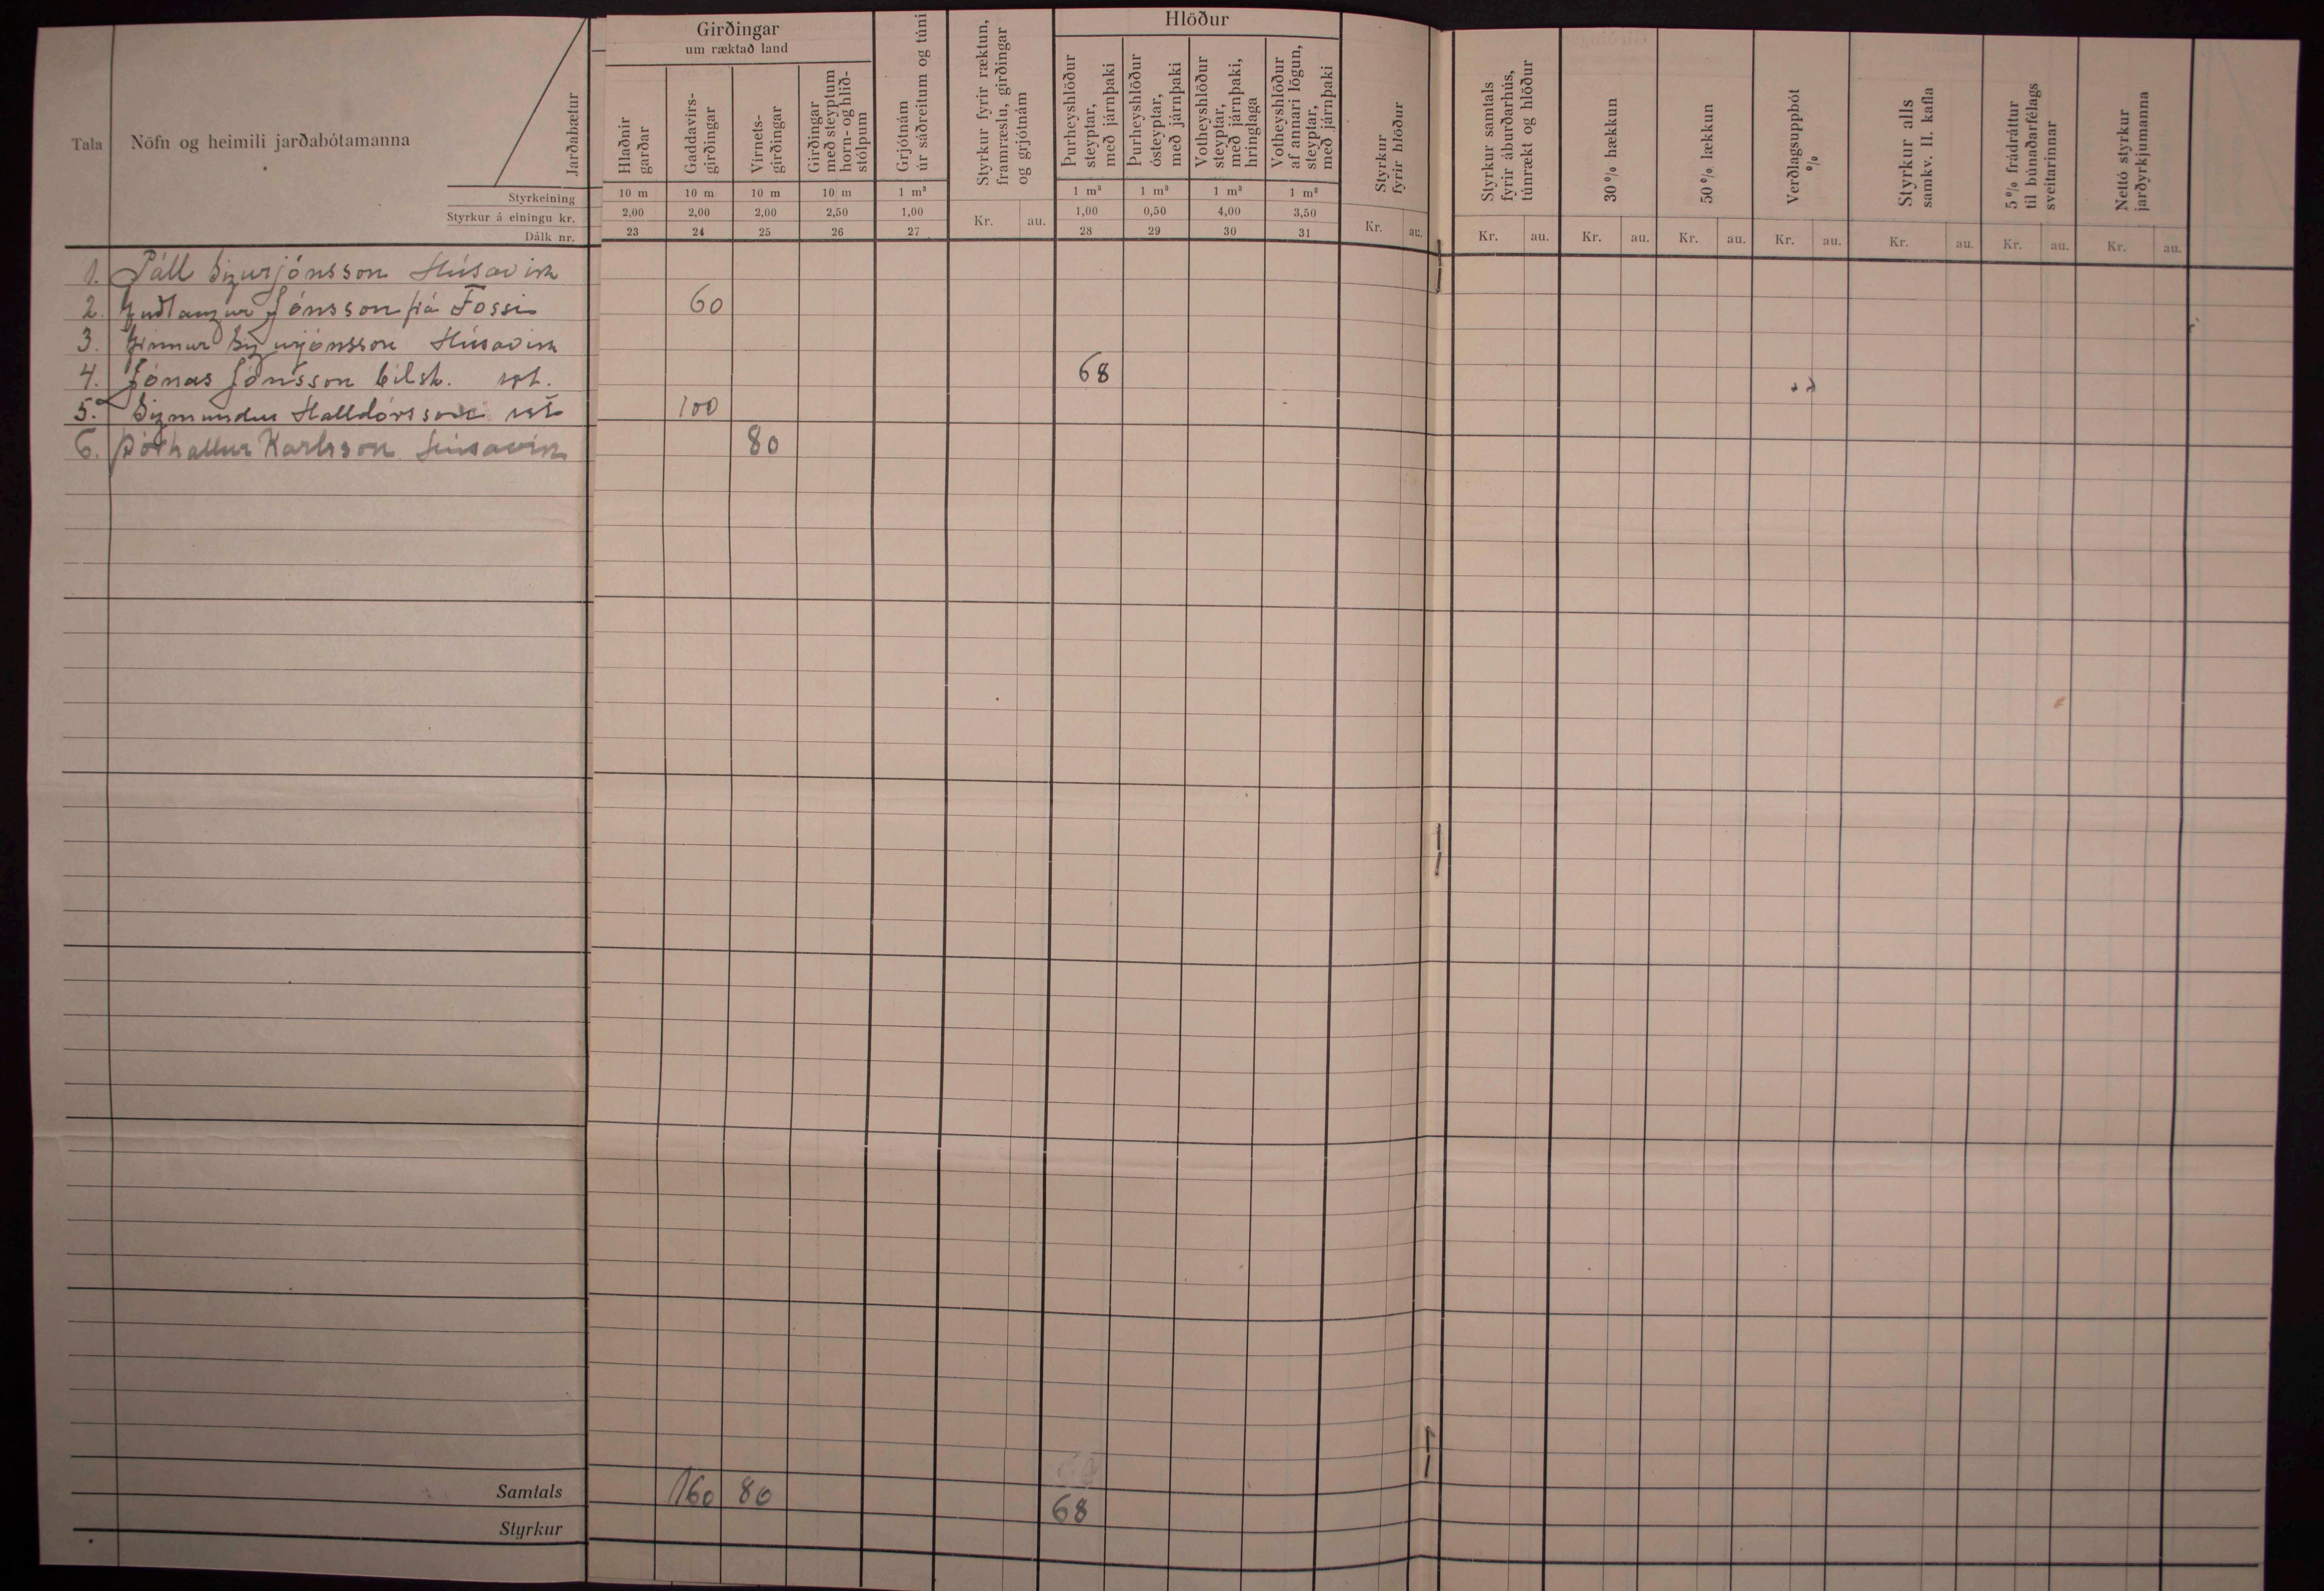 Girðingar
um ræktað land
Hlöður
Tala
Nöfn og heimili jarðabótamanna
Jarðabætur
Hlaðnir garðar
Gaddavírs-girðingar
Vírnets-girðingar
Girðingar með steyptum horn- og hlið-stólpum
Grjótnám úr sáðreitum og túni
Styrkur fyrir ræktun, framræslu, girðingar og grjótnám
Þurheyshlöður steyptar, með járnþaki
Þurheyshlöður ósteyptar, með járnþaki
Votheyshlöður steyptar, með járnþaki, hringlaga
Votheyshlöður af annari lögun, steyptar, með járnþaki
Styrkur fyrir hlöður
Styrkur samtals fyrir áburðarhús, túnrækt og hlöður
30% hækkun
50% lækkun
Verðlagsuppbót %
Styrkur alls samkv. II. kafla
5% frádráttur til búnaðarfélags sveitarinnar
Nettó styrkur jarðyrkjumanna
Styrkeining 10 m 10 m 10 m 10 m 1 m³ 1 m³ 1 m³ 1 m³ 1 m³
Styrkur á einingu kr. 2,00 2,00 2,00 2,50 1,00 Kr. au. 1,00 0,50 4,00 3,50 Kr. au. Kr. au. Kr. au. Kr. au. Kr. au. Kr. au. Kr. au. Kr. au.
Dálk nr. 23 24 25 26 27 28 29 30 31
1. Páll Sigurjónsson Húsavík
2. Guðlaugur Jónsson frá Fossi 60
3. Grímur Sigurjónsson Húsavík
4. Jónas Jónsson bílst. 68
5. Sigmundur Halldórsson 100
6. Þórhallur Karlsson Húsavík 80
Samtals 160 80 68
Styrkur